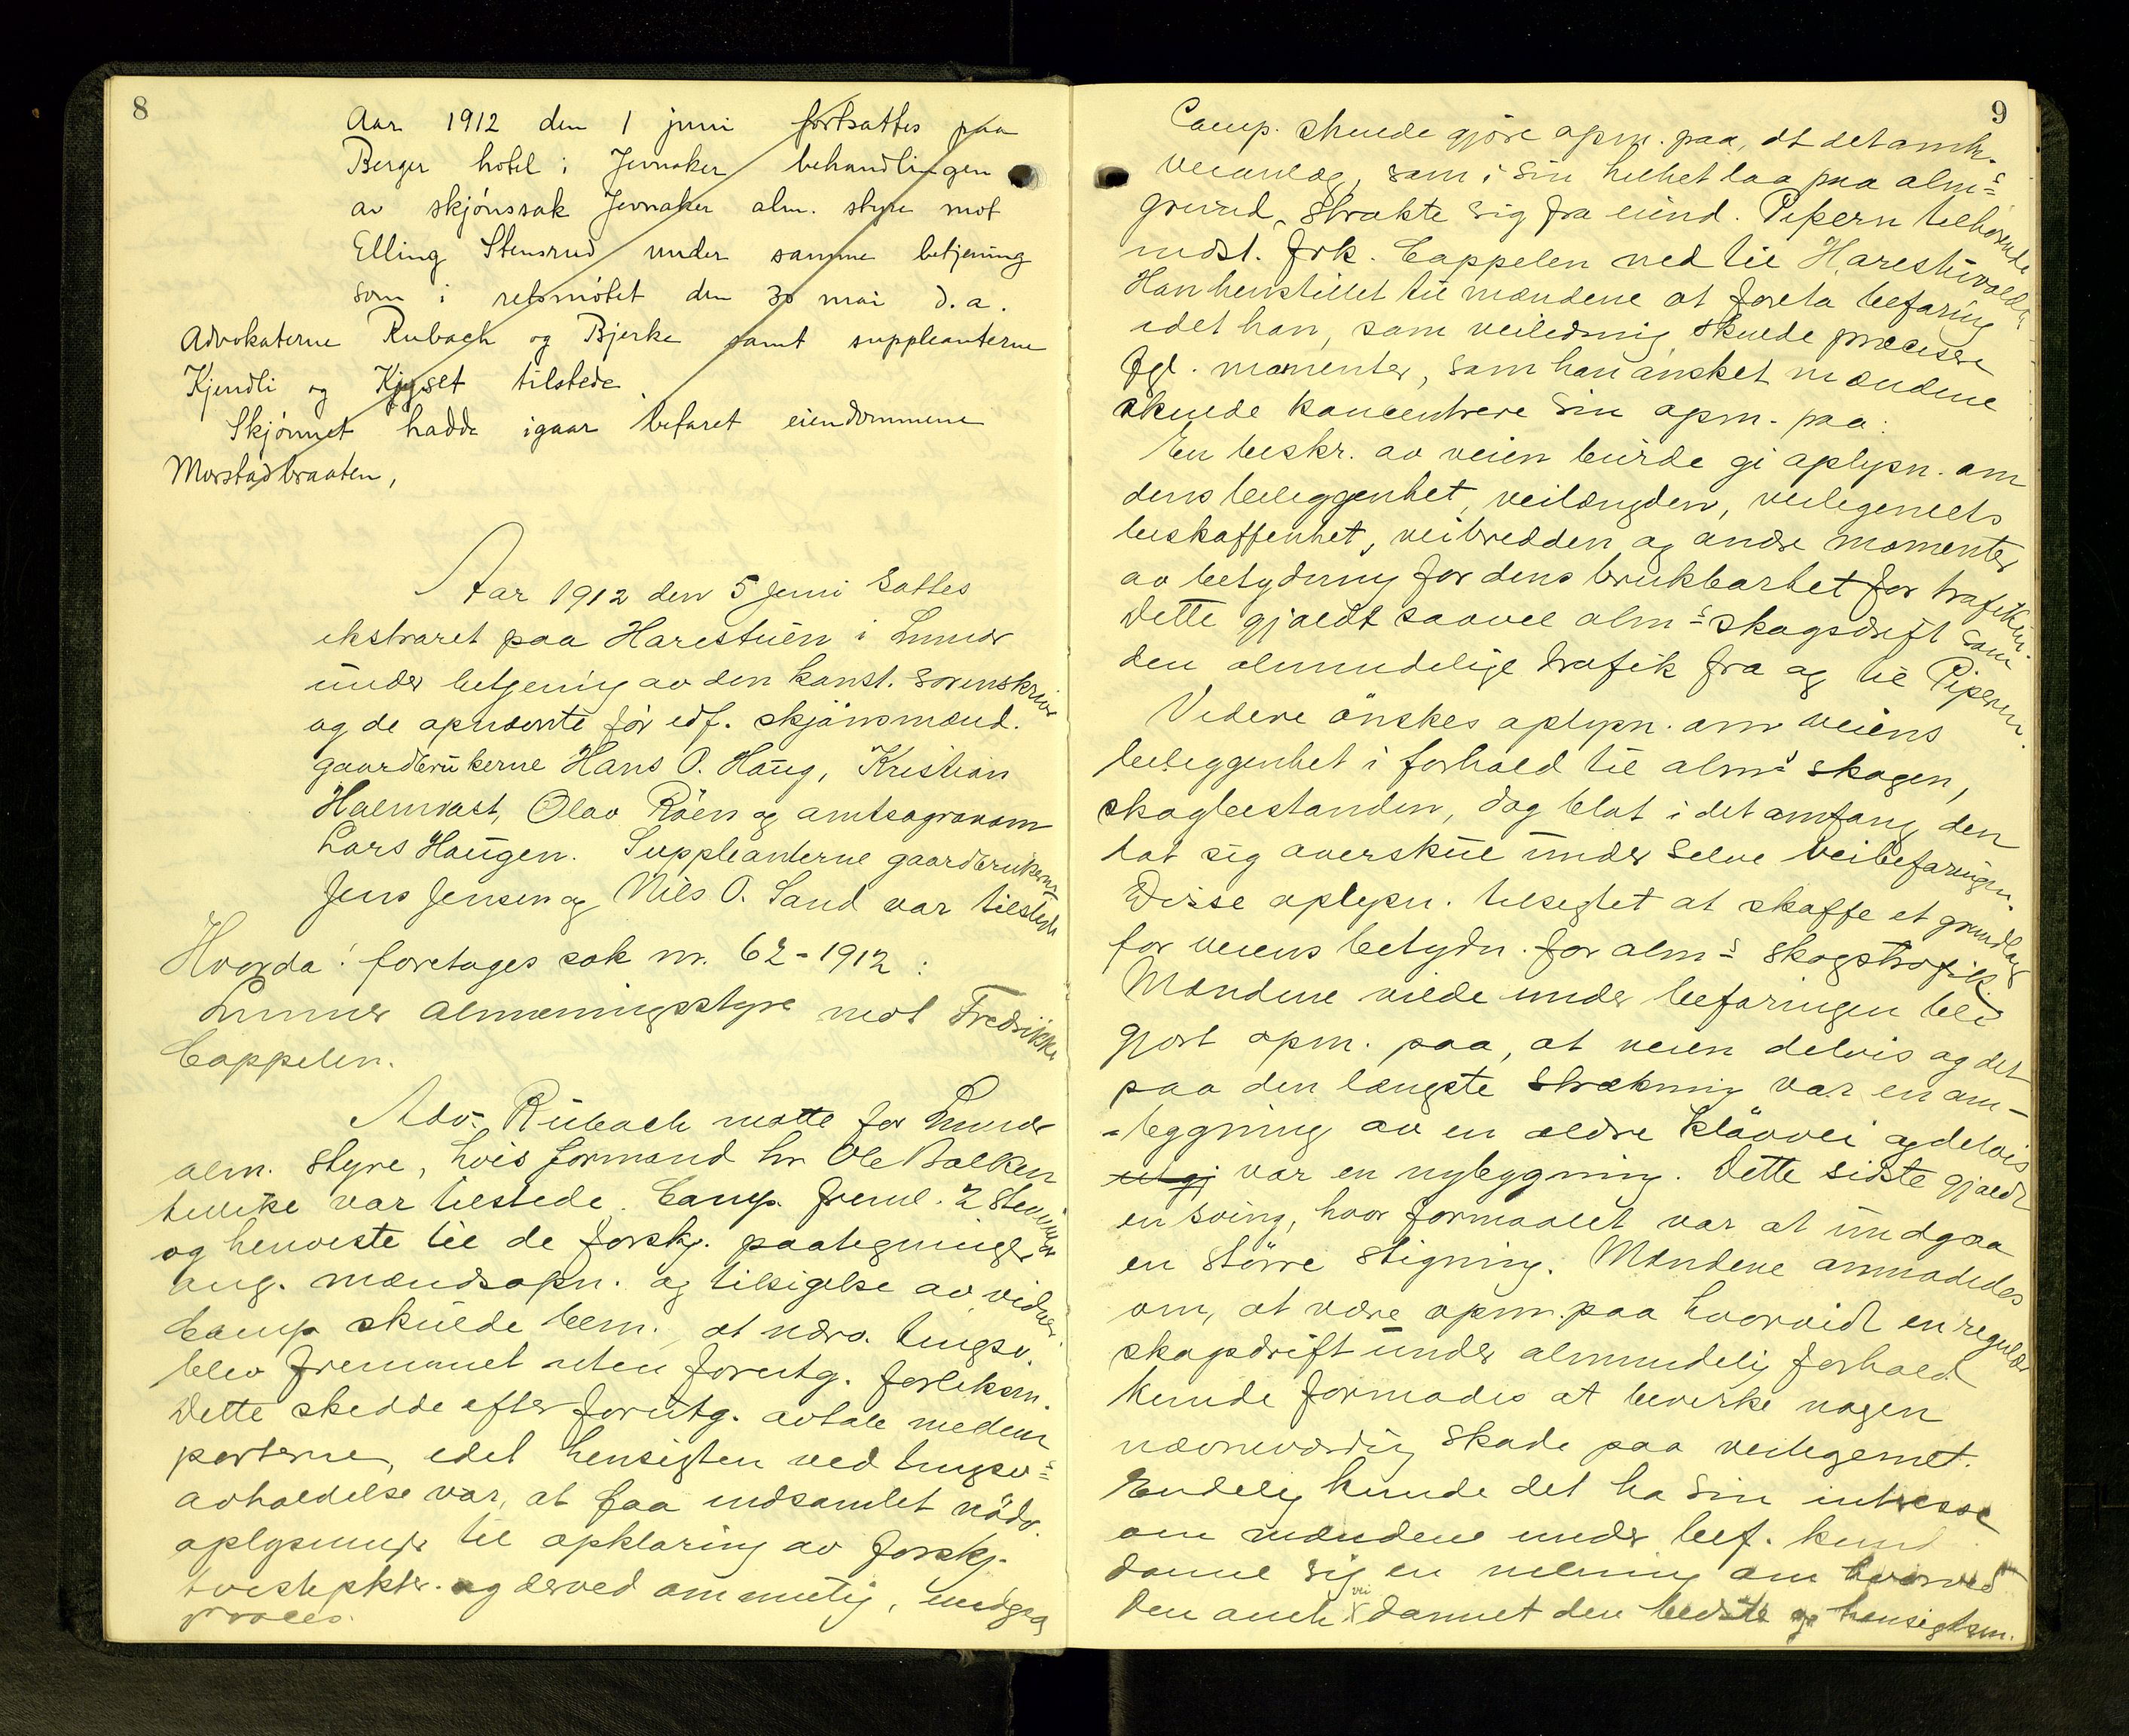 8
Aar 1912 den 1 juni fortsattes paa
Berger hotel i Jevnaker behandlingen
av skjönssak Jevnaker alm. styre mot
Elling Stensrud under samme betjening
som i retsmötet den 30 mai d. a.
Advokaterne Rubach og Bjerke samt suppleanterne
Kjendli og Kjyset tilstede
Skjönnet hadde igaar befaret eiendommene
Morstadbraaten,
Aar 1912 den 5 Juni sattes
ekstraret paa Harestuen i Lunner
under betjening av den konst. sorenskriver
og de opnævnte för edf. skjönsmænd.
gaardbrukerne Hans O. Haug, Kristian
Halmrast, Olav Röen og amtsagronom
Lars Haugen. Suppleanterne gaardbrukerne
Jens Jensen og Nils O. Sand var tilstede
Hvorda: foretages sak nr. 62-1912:
Lunner almenningsstyre mot Fredrikke
Cappelen.
Adv. Rubach mötte for Lunner
alm. styre, hvis formand hr Ole Balken
tillike var tilstede. Comp. freml. 2 stevninger
og henviste til de forskj. paategninger
ang. mændsopn. og tilsigelse av vidner
Comp skulde bem. at nærv. tingsv.
blev fremmet uten forutg. forliksm.
Dette skedde efter forutg. avtale mellem
parterne, idet hensigten ved tingsv.s
avholdelse var, at faa indsamlet nödv.
oplysninger til opklaring av forskj.
tvistepkter. og derved om mulig, undgaa
proces.
9
Comp. skulde gjöre opm. paa, at det omh.
veianlæg, som i sin helhet laa paa alm.s
grund, strakte sig fra eiend. Pipern tilhörende
indst. frk. Cappelen ned til Harestuvolden
Han henstillet til mændene at foreta befaring
idet han, som veiledning skulde præcisere
fgl. momenter, som han önsket mændene
skulde koncentrere sin opm. paa:
En beskr. av veien burde gi oplysn. om
dens beliggenhet, veilængden, veilegemets
beskaffenhet, veibredden og andre momenter
av betydning for dens brukbarhet for trafikken.
Dette gjaldt saavel alm.s skogsdrift som
den almindelige trafik fra og til Pipern.
Videre önskes oplysn. om veiens
beliggenhet i forhold til alm.s skogen,
skogbestanden, dog blot i det omfang den
lot sig overskue under selve veibefaringen.
Disse oplysn. tilsigtet at skaffe et grundlag
for veiens betydn. for alm.s skogstrafik.
Mændene vilde under befaringen bli
gjort opm. paa, at veien delvis og det
paa den længste strækning var en om-
-lægning av en ældre klövvei og delvis
utgj var en nybygning. Dette sidste gjaldt
en sving, hvor formaalet var at undgaa
en större stigning. Mændene anmodedes
om, at være opm. paa hvorvidt en regulær
skogsdrift under almindelig forhold
kunde formodes at bevirke nogen
nævneværdig skade paa veilegemet.
Endelig kunde det ha sin intresse
om mændene under bef. kund
danne sig en mening om hvorved
den omh vei dannet den bedste og hensigtsm.